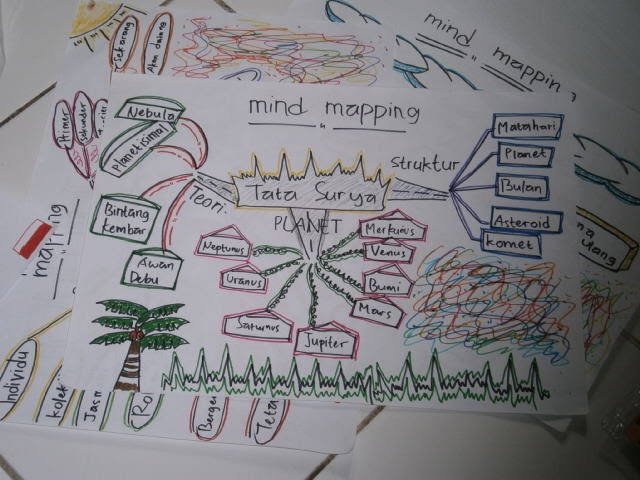 mind mapping
Sekarang
Akan datang
Primer
Sekunder
mapping
Individu
mind mapping
Nebula
Planetisimal
Bintang
Kembar
Awan
Debu
Teori
Tata Surya
Struktur
Matahari
Planet
Bulan
Asteroid
Komet
PLANET
Merkurius
Venus
Bumi
Mars
Jupiter
Saturnus
Uranus
Neptunus